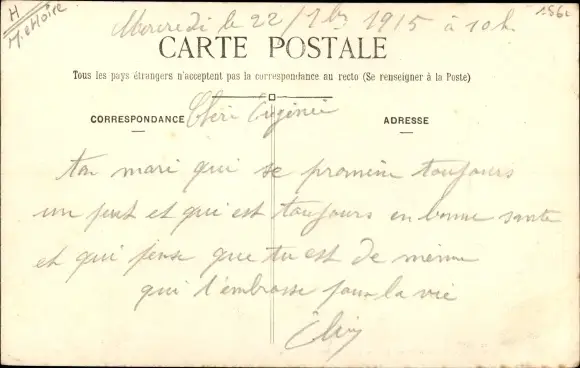 H
M. et Loire
Mercredi le 22 / 7bre 1915 à 10h.
CARTE POSTALE
Tous les pays étrangers n'acceptent pas la correspondance au recto (Se renseigner à la Poste)
CORRESPONDANCE
ADRESSE
Chéri Eugénie
ton mari qui se promène toujours
un peut et qui est toujours en bonne sante
et qui pense que tu est de même
qui t'embrasse pour la vie